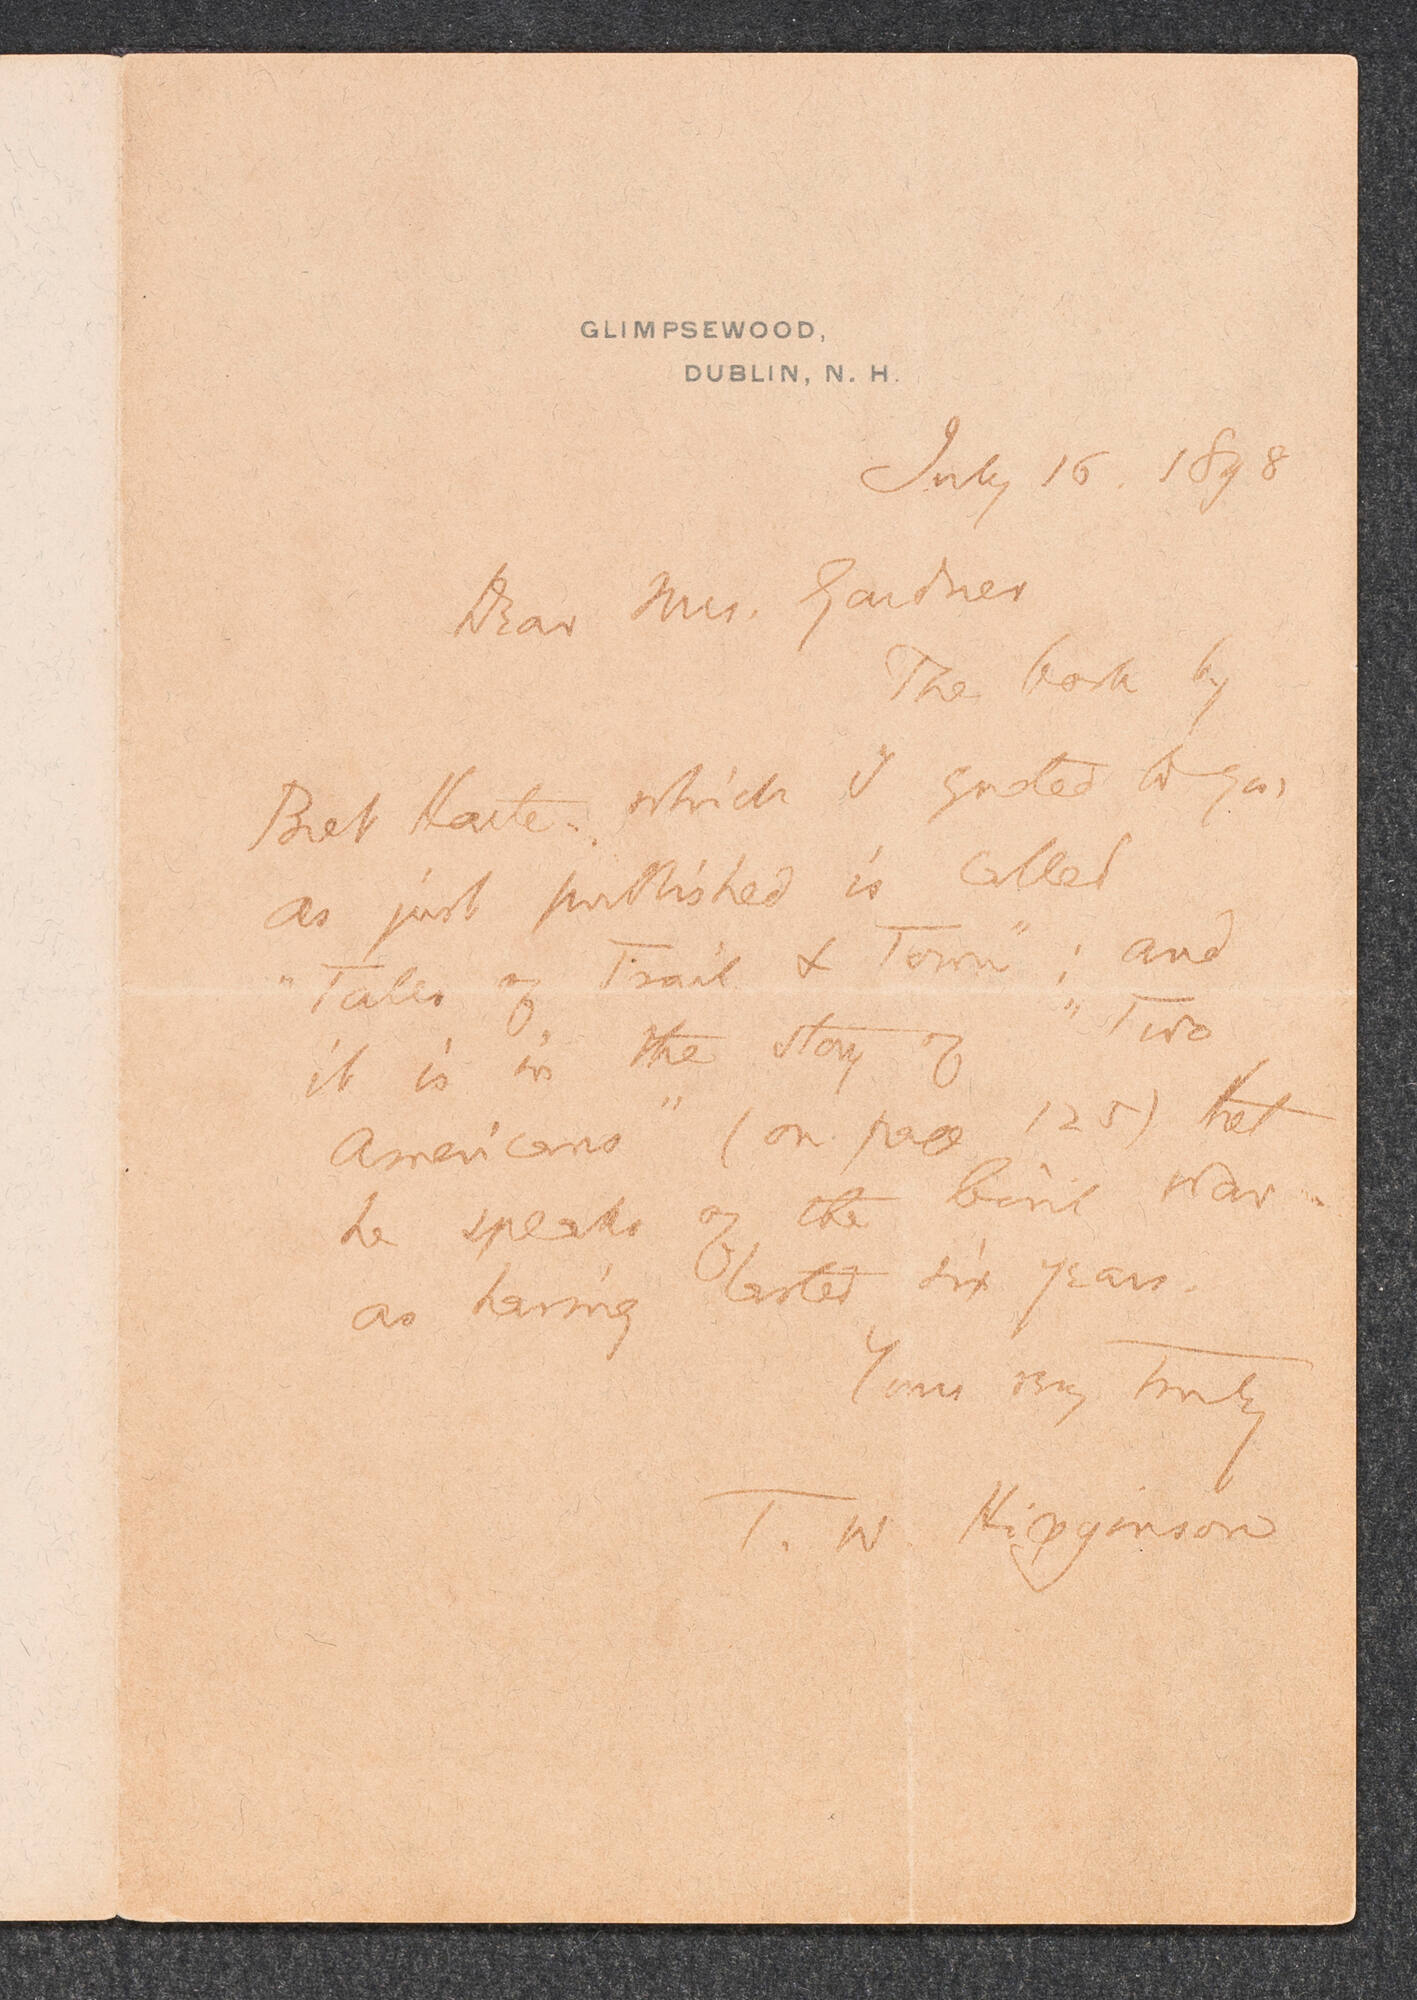 GLIMPSEWOOD,
DUBLIN, N. H.
July 16. 1898
Dear Mrs. Gardner
The book by
Bret Harte which I quoted to you
as just published is called
"Tales of Trail & Town"; and
it is in the story of "Two
Americans" (on page 125) that
he speaks of the Civil War
as having lasted six years.
Yours very truly
T. W. Higginson